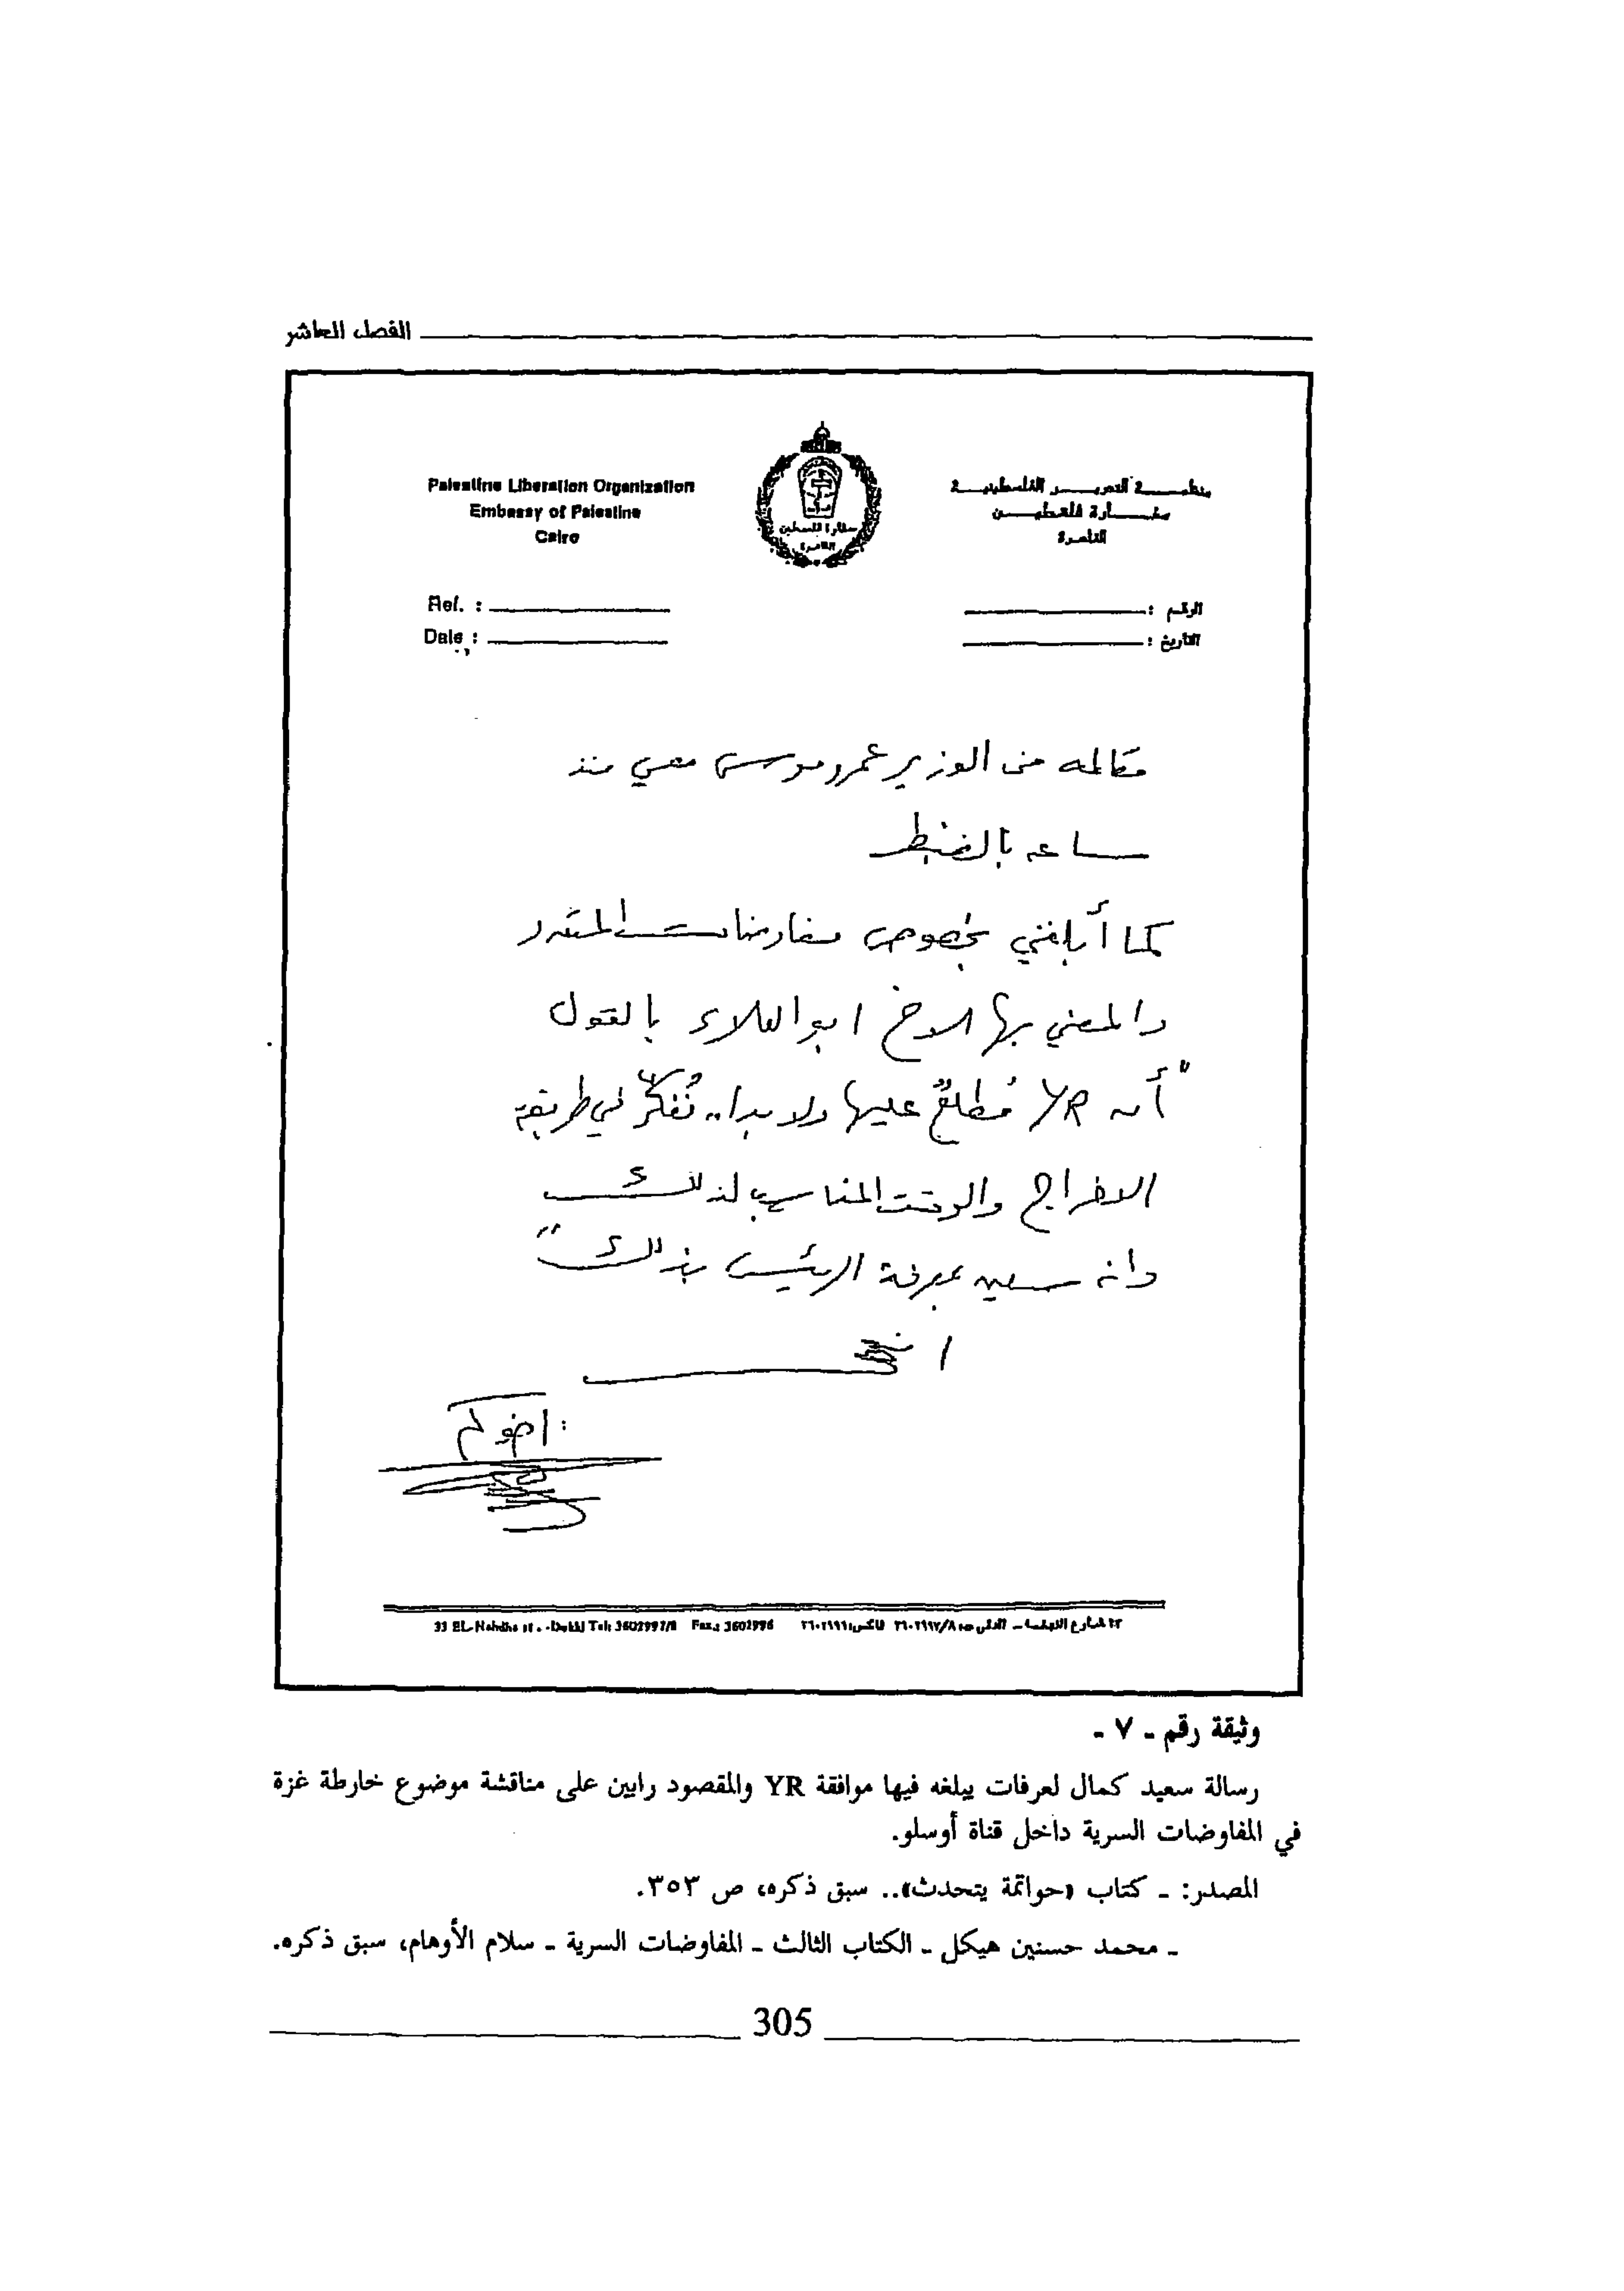 الفصل العاشر
Palestine Liberation Organization
Embassy of Palestine
Cairo
منظمـــة التحريـــر الفلسطينيـــة
سفـــارة فلسطيـــن
القاهرة
سفارة فلسطين
القاهرة
Ref. :
Date :
الرقم :
التاريخ :
مكالمه من الوزير عمرو موسى معي منذ
ساعه بالضبط
كما أبلغني بخصوص مفاوضات
والمعني بها الاخ ابو العلاء بالقول
"أن YR مُطلعٌ عليها ولا بدا.. نُفكّر في طريقة
الاخراج والوقت المناسب لذلك
وانه سعيد بمعرفة الرئيس بذلك"
اخوكم
33 EL-Nahdha st. -Dokki Tel: 3602997/8 Fax.: 3602996
٣٣ شارع النهضـة ـ الدقى ت: ٣٦٠٢٩٩٧/٨ فاكس: ٣٦٠٢٩٩٦
وثيقة رقم ـ ٧ ـ
رسالة سعيد كمال لعرفات يبلغه فيها موافقة YR والمقصود رابين على مناقشة موضوع خارطة غزة
في المفاوضات السرية داخل قناة أوسلو.
المصدر: ـ كتاب «حواتمة يتحدث».. سبق ذكره، ص ٣٥٣.
ـ محمد حسنين هيكل ـ الكتاب الثالث ـ المفاوضات السرية ـ سلام الأوهام، سبق ذكره.
305